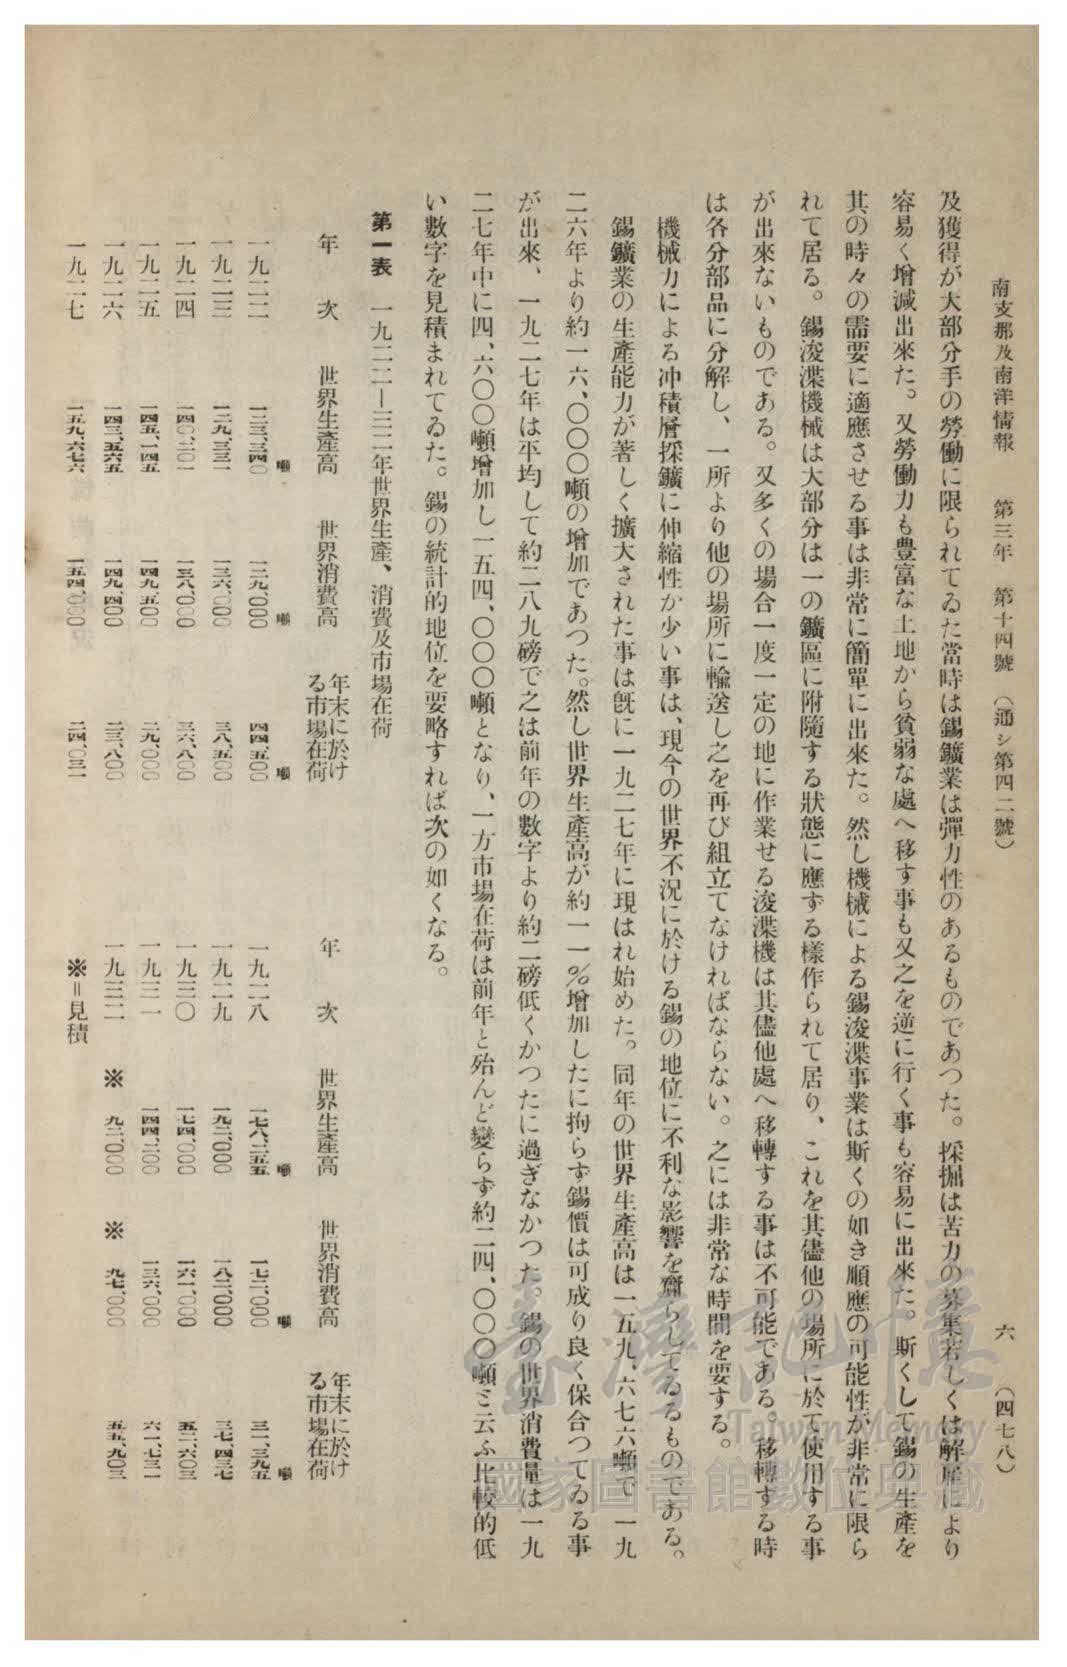 南支那及南洋情報　第三年　第十四號　（通シ第四二號）　六　（四七八）
及獲得が大部分手の勞働に限られてゐた當時は錫鑛業は彈力性のあるものであつた。採掘は苦力の募集若しくは解雇により
容易く增減出來た。又勞働力も豊富な土地から貧弱な處へ移す事も又之を逆に行く事も容易に出來た。斯くして錫の生產を
其の時々の需要に適應させる事は非常に簡單に出來た。然し機械による錫浚渫事業は斯くの如き順應の可能性が非常に限ら
れて居る。錫浚渫機械は大部分は一の鑛區に附隨する狀態に應ずる樣作られて居り、これを其儘他の場所に於て使用する事
が出來ないものである。又多くの場合一度一定の地に作業せる浚渫機は其儘他處へ移轉する事は不可能である。移轉する時
は各分部品に分解し、一所より他の場所に輸送し之を再び組立てなければならない。之には非常な時間を要する。
機械力による冲積層採鑛に伸縮性か少い事は、現今の世界不況に於ける錫の地位に不利な影響を齎らしてゐるものである。
錫鑛業の生產能力が著しく擴大された事は旣に一九二七年に現はれ始めた。同年の世界生產高は一五九、六七六噸で一九
二六年より約一六、〇〇〇噸の增加であつた。然し世界生產高が約一一％增加したに拘らず錫價は可成り良く保合つてゐる事
が出來、一九二七年は平均して約二八九磅で之は前年の數字より約二磅低くかつたに過ぎなかつた。錫の世界消費量は一九
二七年中に四、六〇〇噸增加し一五四、〇〇〇噸となり、一方市場在荷は前年と殆んど變らず約二四、〇〇〇噸ミ云ふ比較的低
い數字を見積まれてゐた。錫の統計的地位を要略すれば次の如くなる。
第一表　一九二二―三二年世界生產、消費及市場在荷
年次　世界生產高　世界消費高　年末に於ける市場在荷　年次　世界生產高　世界消費高　年末に於ける市場在荷
噸　噸　噸　噸　噸　噸
一九二二　一二三、三四〇　一二九、〇〇〇　四四、五〇〇　一九二八　一七八、二五五　一七二、〇〇〇　三一、三九五
一九二三　一二九、三三一　一三六、〇〇〇　三八、五〇〇　一九二九　一九二、〇〇〇　一八二、〇〇〇　三七、四三七
一九二四　一四〇、二〇一　一三八、〇〇〇　三六、八〇〇　一九三〇　一七四、〇〇〇　一六一、〇〇〇　五二、六〇三
一九二五　一四五、一四五　一四九、五〇〇　二九、〇〇〇　一九三一　一四四、二〇〇　一三六、〇〇〇　六一、七三一
一九二六　一四三、五六五　一四九、四〇〇　二三、八〇〇　一九三二　※　九二、〇〇〇　※　九七、〇〇〇　五五、九〇三
一九二七　一五九、六七六　一五四、〇〇〇　二四、〇三一　※＝見積
臺灣記憶
Taiwan Memory
國家圖書館數位典藏